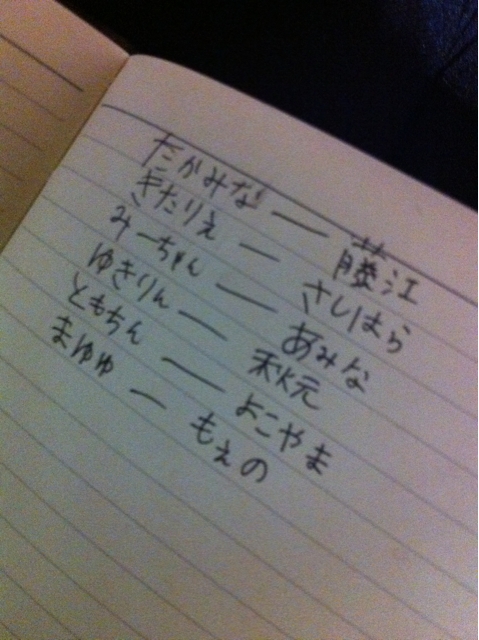 たかみな — 藤江
きたりえ — さしはら
みーちゃん — あみな
ゆきりん — 秋元
ともちん — よこやま
まゆゆ — もえの